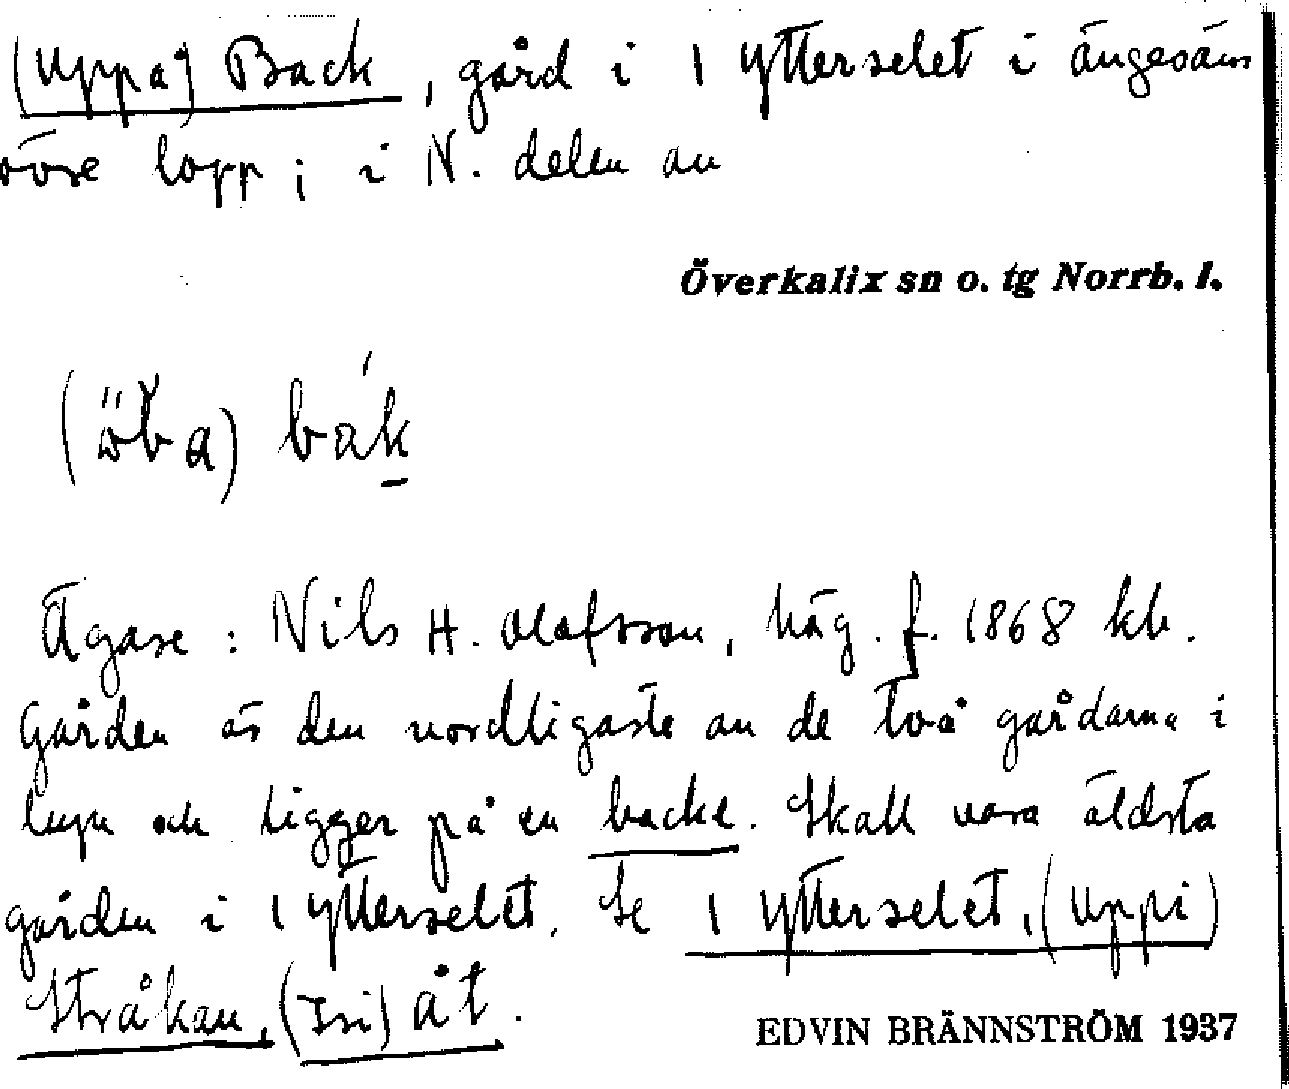 (Uppå) Back, gård i 1 Ytterselet i Ängesåns
övre lopp; i N. delen av
Överkalix sn o. tg Norrb. l.
bák
Ägare: Nils H. Olofsson, häg. f. 1868 kb.
Gården är den nordligaste av de två gårdarna i
byn och ligger på en backe. Skall vara äldsta
gården i 1 Ytterselet. Se 1 Ytterselet, (Uppi)
Stråkan, (Isi) åt.
EDVIN BRÄNNSTRÖM 1937